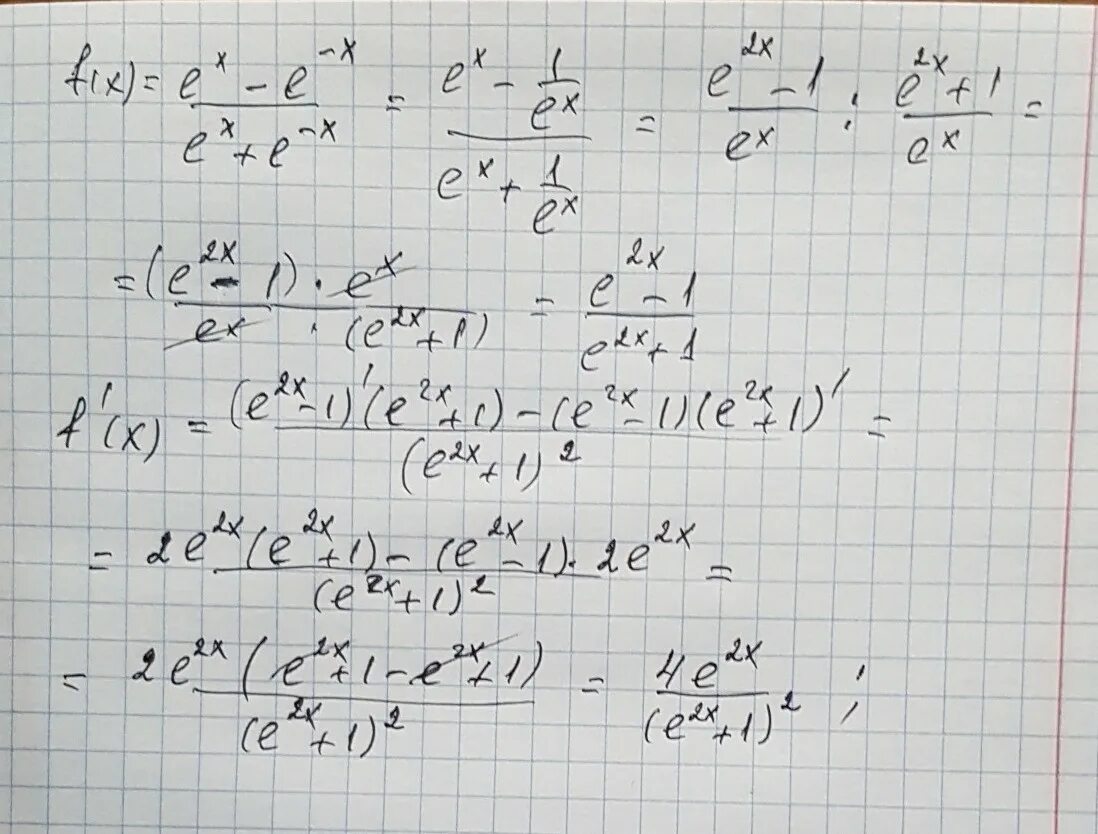 f(x) = \frac{e^x - e^{-x}}{e^x + e^{-x}} = \frac{e^x - \frac{1}{e^x}}{e^x + \frac{1}{e^x}} = \frac{e^{2x} - 1}{e^x} : \frac{e^{2x} + 1}{e^x} =
= \frac{(e^{2x} - 1) \cdot e^x}{e^x \cdot (e^{2x} + 1)} = \frac{e^{2x} - 1}{e^{2x} + 1}
f'(x) = \frac{(e^{2x} - 1)'(e^{2x} + 1) - (e^{2x} - 1)(e^{2x} + 1)'}{(e^{2x} + 1)^2} =
= \frac{2e^{2x}(e^{2x} + 1) - (e^{2x} - 1) \cdot 2e^{2x}}{(e^{2x} + 1)^2} =
= \frac{2e^{2x}(e^{2x} + 1 - e^{2x} + 1)}{(e^{2x} + 1)^2} = \frac{4e^{2x}}{(e^{2x} + 1)^2} ;